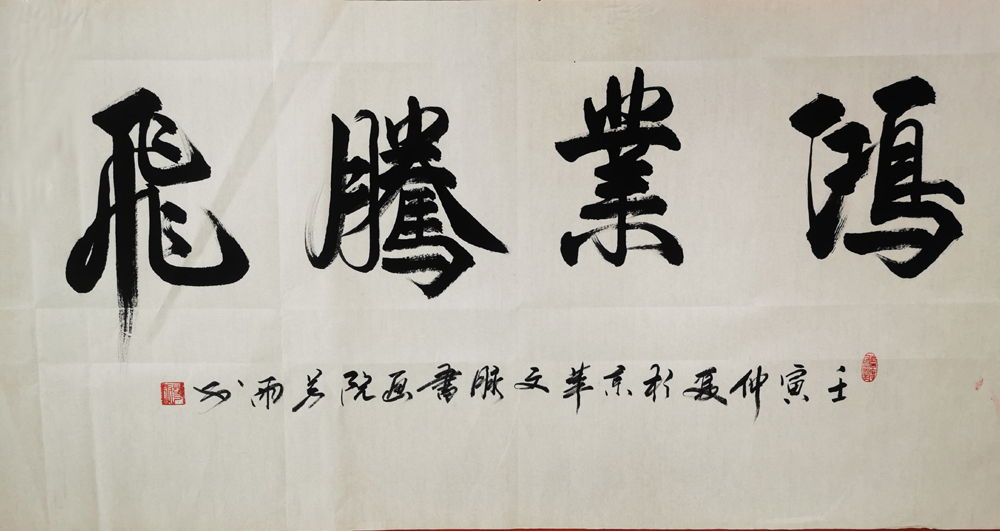 鴻業騰飛
壬寅仲夏於京華文脉書画院若雨